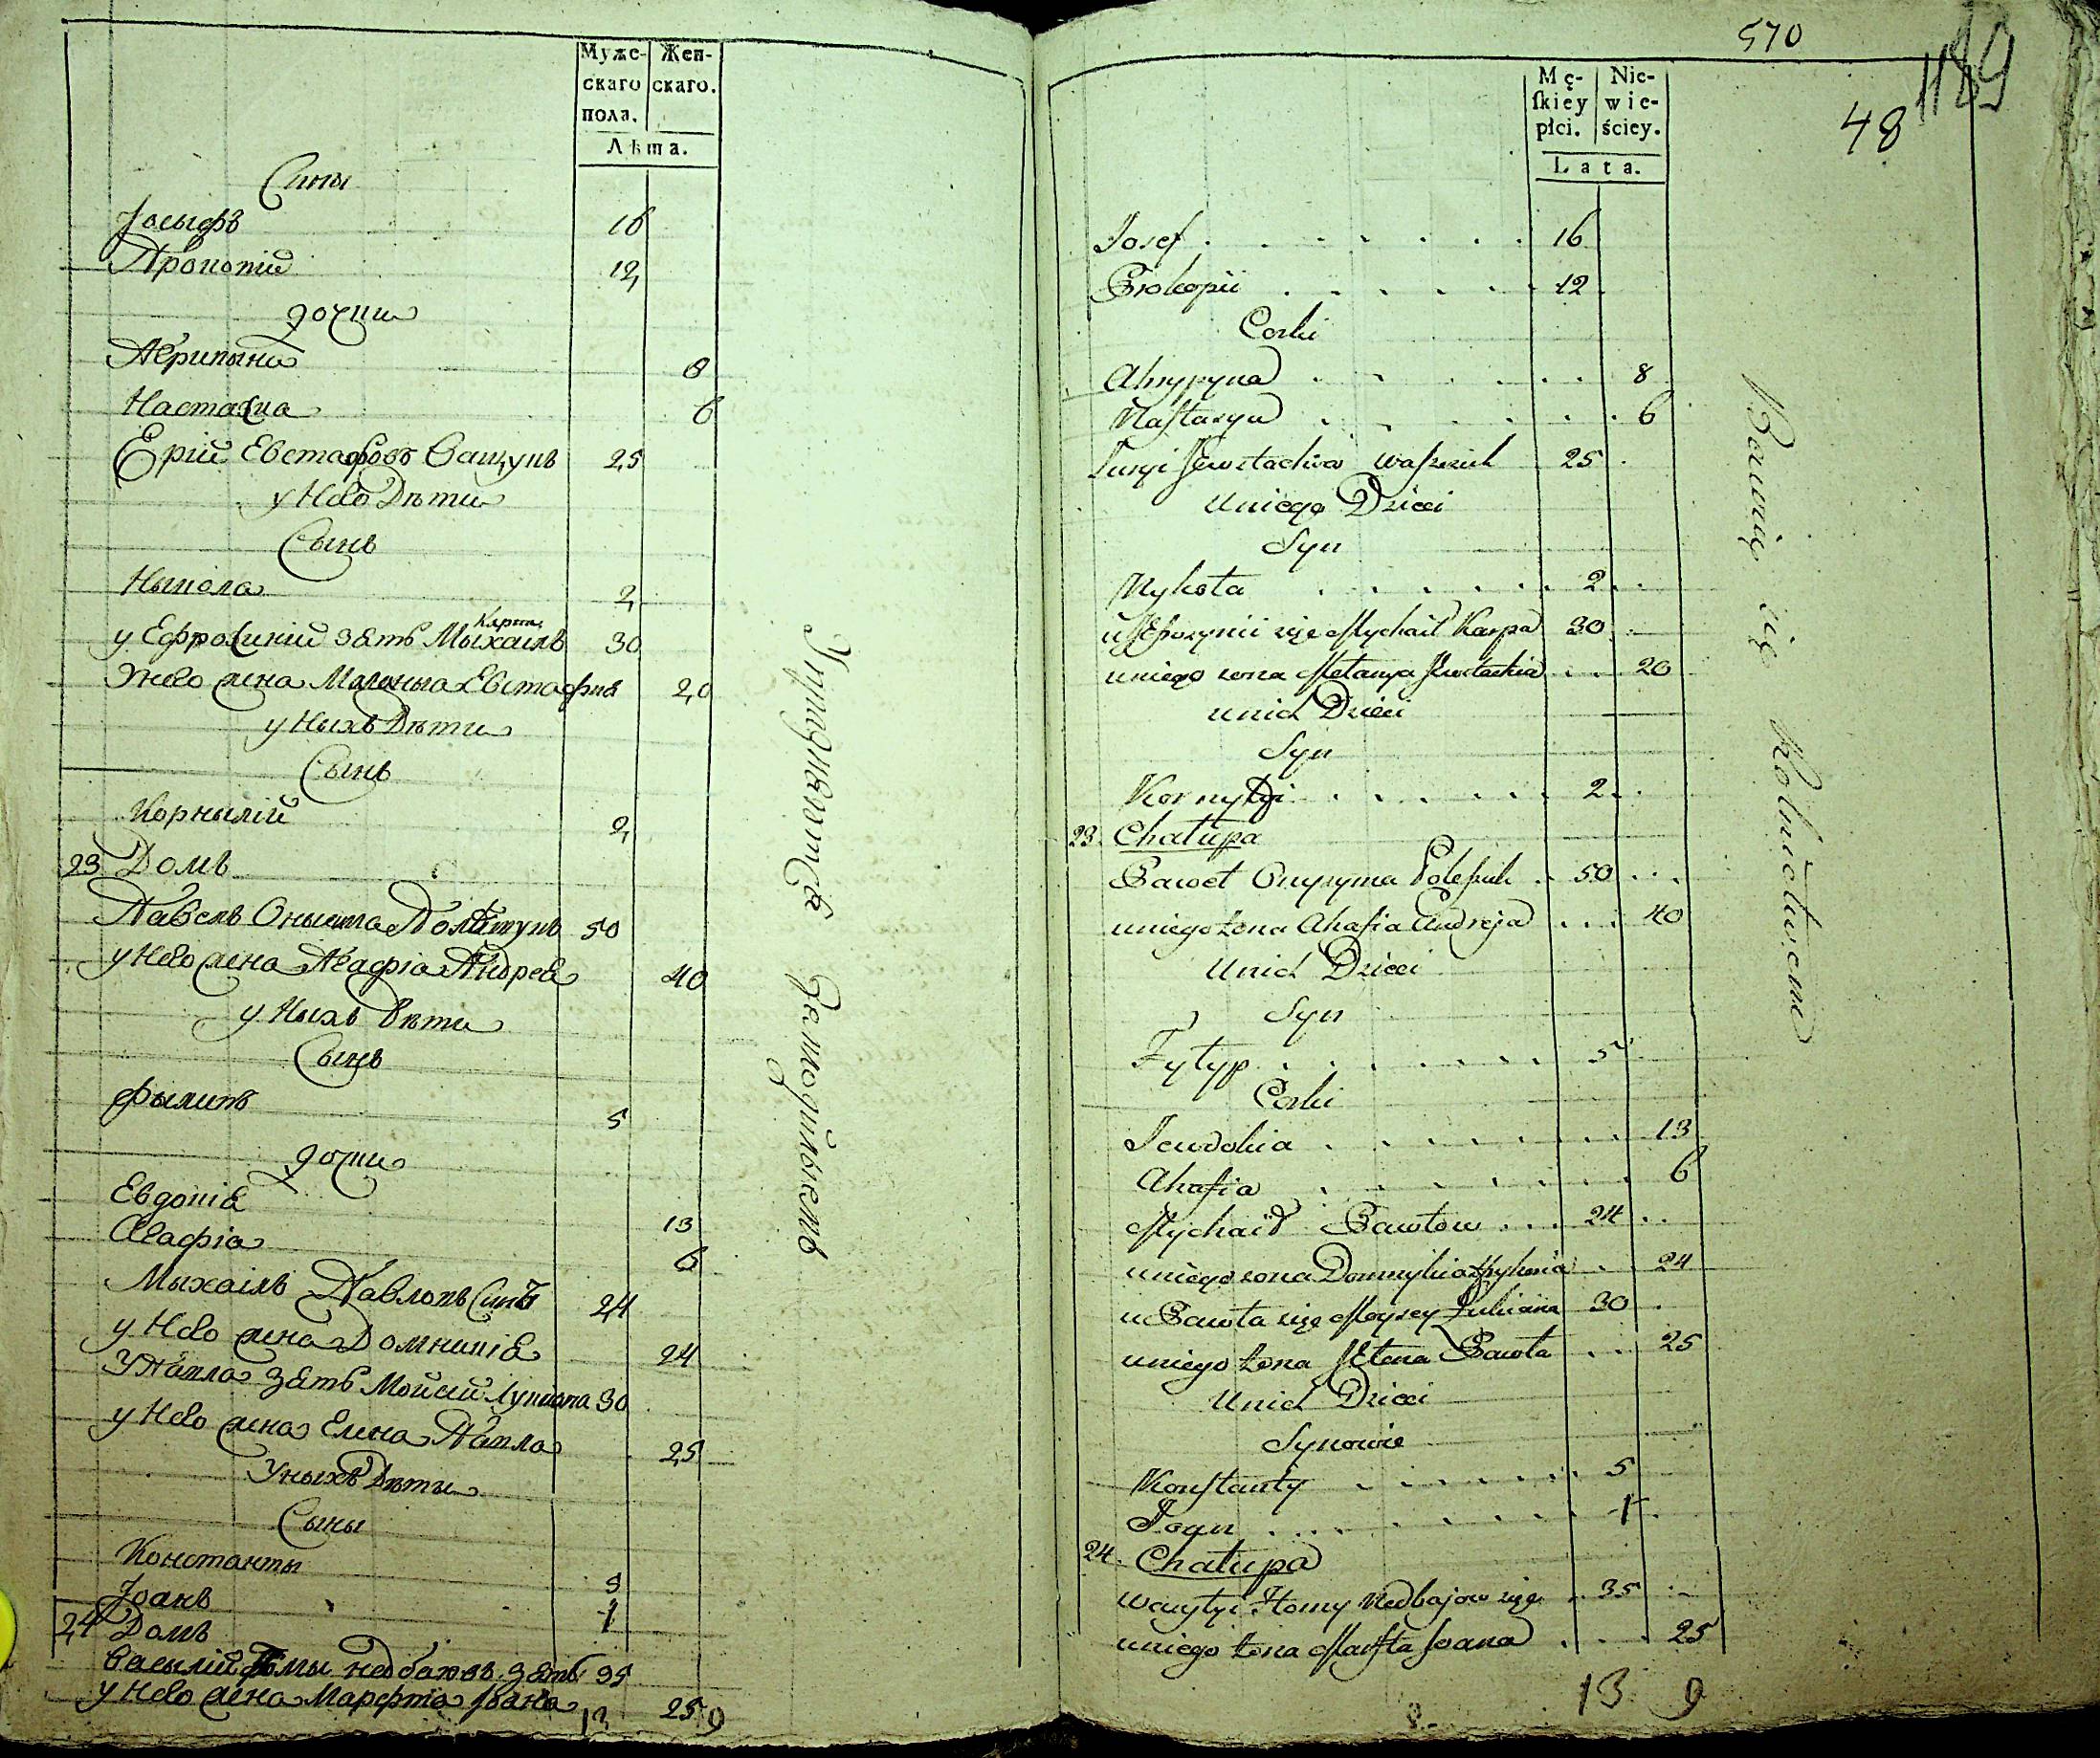 Муже-
скаго
пола.
Жен-
скаго.
Лѣта.
Сины
Іосыфъ 16
Прокопій 12
дочки
Агрипына 8
Настасиа 6
Ерій Евстафовъ Ващукъ 25
у Него Дѣти
Сынъ
Ныкола 2
Карпа
у Ефросиніи зать Мыхаилъ 30
Унего жена Маланыа Евстафыа 20
у Ныхъ Дѣти
Сынъ
Корнылій 2
23 Домъ
Павелъ Оныпма Полѣшукъ 50
у Него жена Агафіа Андреа 40
у Ныхъ Дѣти
Сынъ
Фылипъ 5
дочки
Евдокіа 13
Агафіа 6
Мыхаілъ Павловъ Синъ 24
у Него жена Домникіа 24
У Павла зать Мойсій Лукиана 30
у Него жена Елена Павла 25
Уныхъ Дѣти
Сыны
Константы 5
Іоанъ 1
24 Домъ
Василій Томы недбаювъ зать 35
у Него жена Марфта Іоана 25
13 9
Упражняется Земледѣлиемъ
570
119
48
Mę-
ſkiey
płci.
Nie-
wie-
ściey.
Lata.
Josef 16
Prokopii 12
Corki
Ahrypyna 8
Naſtazya 6
Juryi Jewstachwa Waſzczuk 25
Uniego Dzieci
Syn
Mykoła 2
u Jefrozynii zięć Mychaił Karpa 30
uniego żona Mełanya Jewstachia 20
unich Dzieci
Syn
Kornyłyi 2
23. Chałupa
Paweł Onypyma Poleſzuk 50
uniego żona Ahafia Andreja 40
Unich Dzieci
Syn
Fyłyp 5
Corki
Jewdokia 13
Ahafia 6
Mychaił Pawłow 24
uniego żona Domnykia 24
u Pawła zięć Moysey Łukiana 30
uniego żona Jełena Pawła 25
Unich Dzieci
Synowie
Konſtanty 5
Joan 1
24. Chałupa
Wasylyi Tomy Nedbajow zięć 35
uniego żona Marfta Joana 25
13 9
Bawnię się Rolnictwem